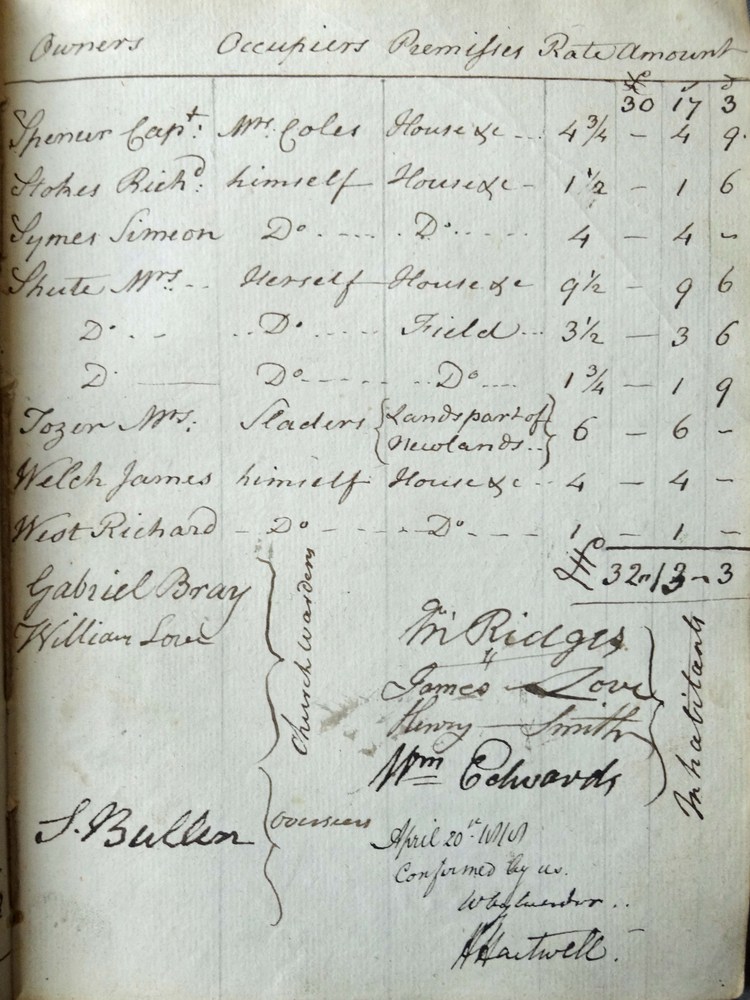 Owners Occupiers Premisses Rate Amount
£ s d
30 17 3
Spencer Capt: Mrs. Coles House &c - - - 4 3/4 — 4 9.
Stokes Richd: himself House &c - 1 1/2 — 1 6
Symes Simeon Do - - - - Do - - - - 4 — 4 -
Shute Mrs. - - Herself House &c 9 1/2 — 9 6
Do - - - - Do - - - - Field - - 3 1/2 — 3 6
D. — Do - - - - - - Do - - - - 1 3/4 — 1 9
Tozer Mrs: Sladers { Lands part of
Newlands - - } 6 — 6 -
Welch James himself House &c - - 4 — 4 -
West Richard - Do - - - - - Do - - - - 1 — 1 -
£ 32 " 13 - 3
Gabriel Bray
William Love
Church Wardens
Jn Ridges
James Love
Henry Smith
Wm Edwards
Inhabitants
S. Bullen
Overseers
April 20th
Confirmed by us.
H Hartwell.